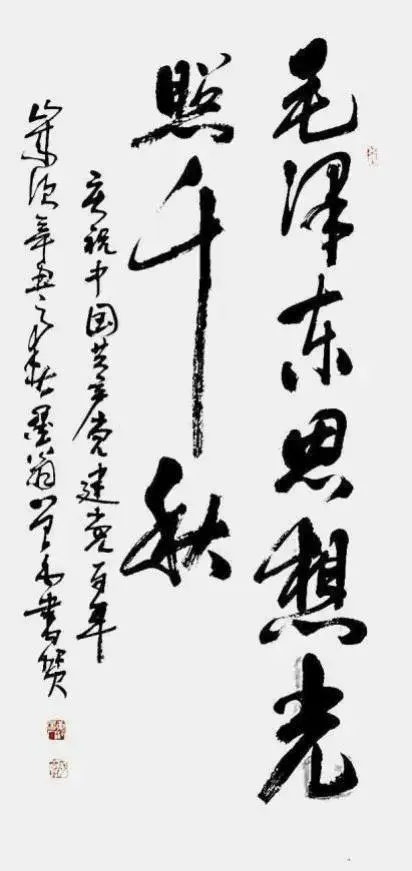 毛泽东思想光
照千秋
庆祝中国共产党建党百年
岁次辛丑之秋墨翁书